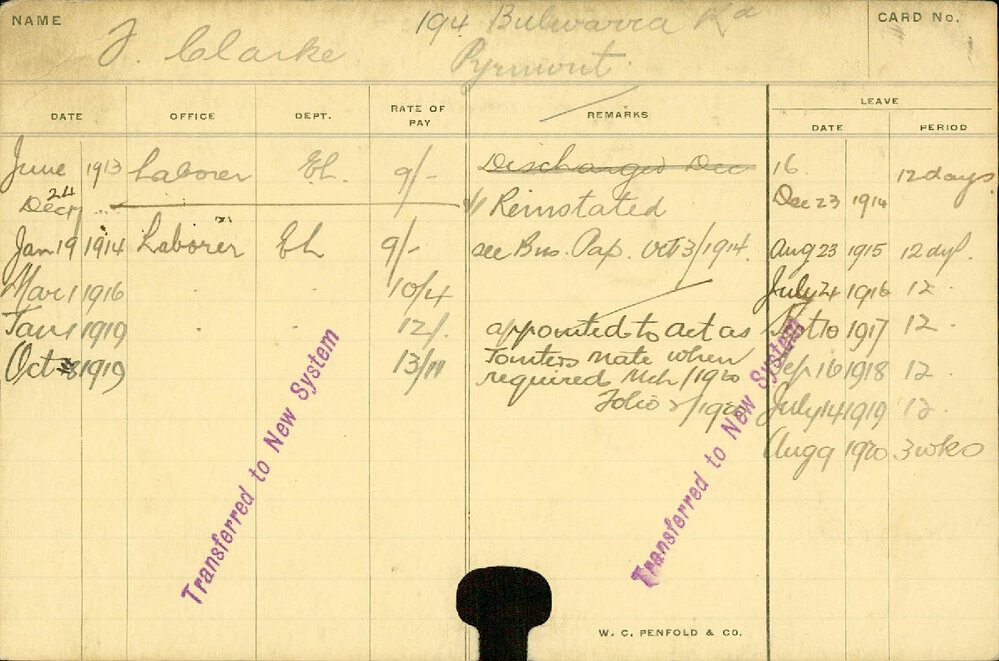 NAME
J. Clarke
194 Bulwarra Rd
Pyrmont
CARD No.
DATE OFFICE DEPT. RATE OF PAY REMARKS LEAVE
DATE PERIOD
June 1913 Laborer EL. 9/- Discharged Dec 16 12 days
Dec 24 " Reinstated Dec 23 1914
Jan 19 1914 Laborer EL 9/- see Bus. Pap. Oct 3/1914. Aug 23 1915 12 dys.
Mar 1 1916 10/4 July 24 1916 12
Jan 1 1919 12/. appointed to act as Sept 10 1917 12
Oct 1919 13/11 Jointers Mate when Sep 16 1918 12
required Mch/1920
Folio 2/1920 July 14 1919 12
Aug 9 1920 3 wks
Transferred to New System
Transferred to New System
W. C. PENFOLD & CO.